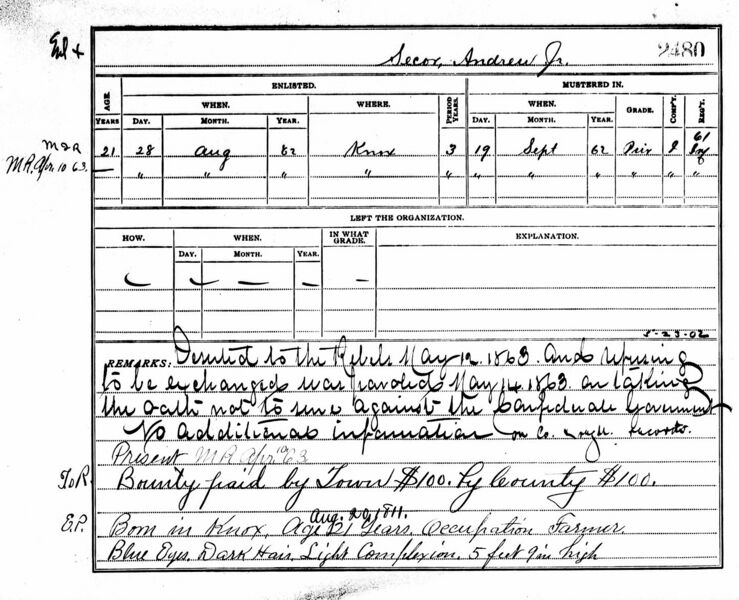 Enl +
Secor, Andrew Jr. 2480
ENLISTED. MUSTERED IN.
AGE. WHEN. WHERE. PERIOD YEARS. WHEN. GRADE. COMP'Y. REG'T.
YEARS DAY. MONTH. YEAR. DAY. MONTH. YEAR.
61
M&R 21 28 Aug 62 Knox 3 19 Sept 62 Priv I Inf
M.R. Apr. 10 63. — " " " " " " " " " " "
LEFT THE ORGANIZATION.
HOW. WHEN. IN WHAT GRADE. EXPLANATION.
DAY. MONTH. YEAR.
5-23-02
REMARKS: Deserted to the Rebels May 12. 1863. and refusing
to be exchanged was paroled May 14. 1863. on taking
the oath not to serve against the Confederate Government
No additional information on Co. & regtl. records.
Present M R Apr 10 63
To R Bounty paid by Town $100. by County $100.
Aug. 20, 1811.
E.P. Born in Knox, Age 21 Years, Occupation Farmer.
Blue Eyes, Dark Hair, Light Complexion, 5 feet 9 in high